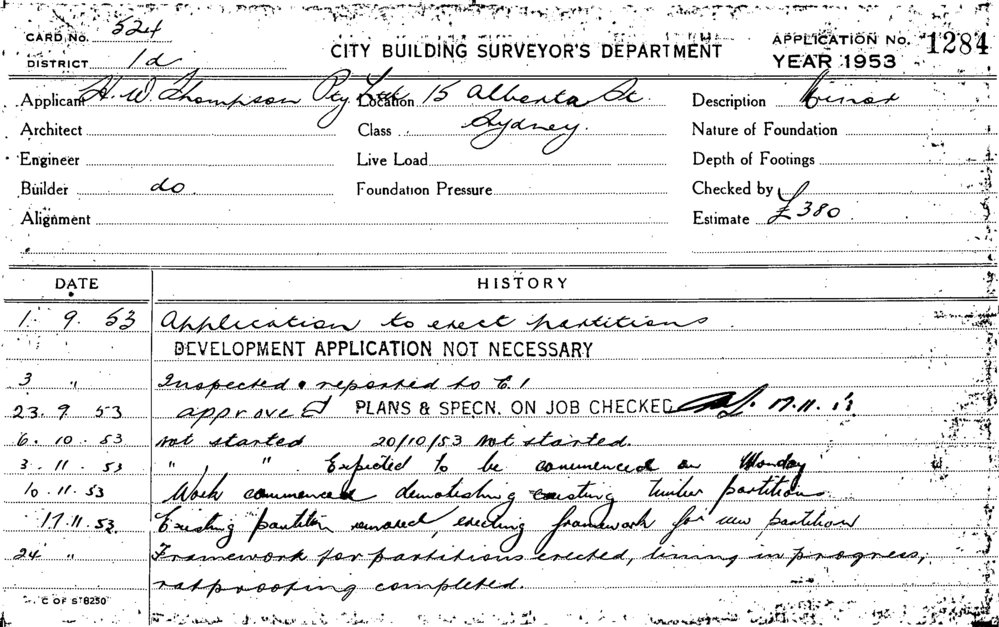 CARD No. 524
DISTRICT 1d
CITY BUILDING SURVEYOR'S DEPARTMENT
APPLICATION No. 1284
YEAR 1953
Applicant H. W. Thompson Pty. Ltd. Location 15 Alberta St. Description Minor
Architect Class Sydney. Nature of Foundation
Engineer Live Load Depth of Footings
Builder do Foundation Pressure Checked by
Alignment Estimate £380
DATE HISTORY
1. 9. 53 Application to erect partitions.
DEVELOPMENT APPLICATION NOT NECESSARY
3 " Inspected & reported to C.
23. 9. 53 approved PLANS & SPECN. ON JOB CHECKED 17.11.
6. 10. 53 Not started 20/10/53 Not started.
3. 11. 53 " " Expected to be commenced on Monday
10. 11. 53 Work commenced demolishing existing timber partitions
17. 11. 53. Existing partition removed, erecting framework for new partition
24 " Framework for partitions erected, lining in progress,
ratproofing completed.
C OF S 8250